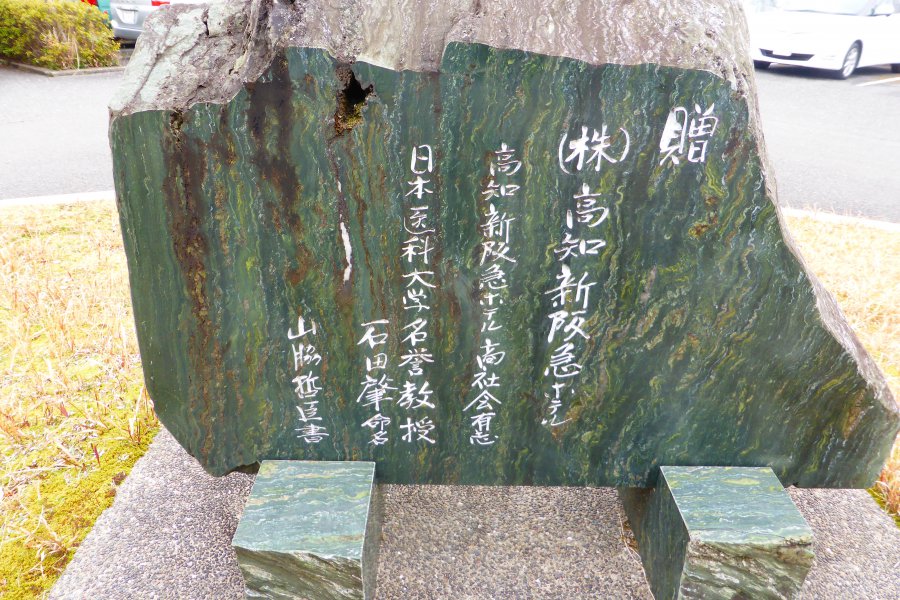 贈
(株)高知新阪急ホテル
高知新阪急ホテル商社会有志
日本医科大学名誉教授
石田肇命名
山脇哲臣書